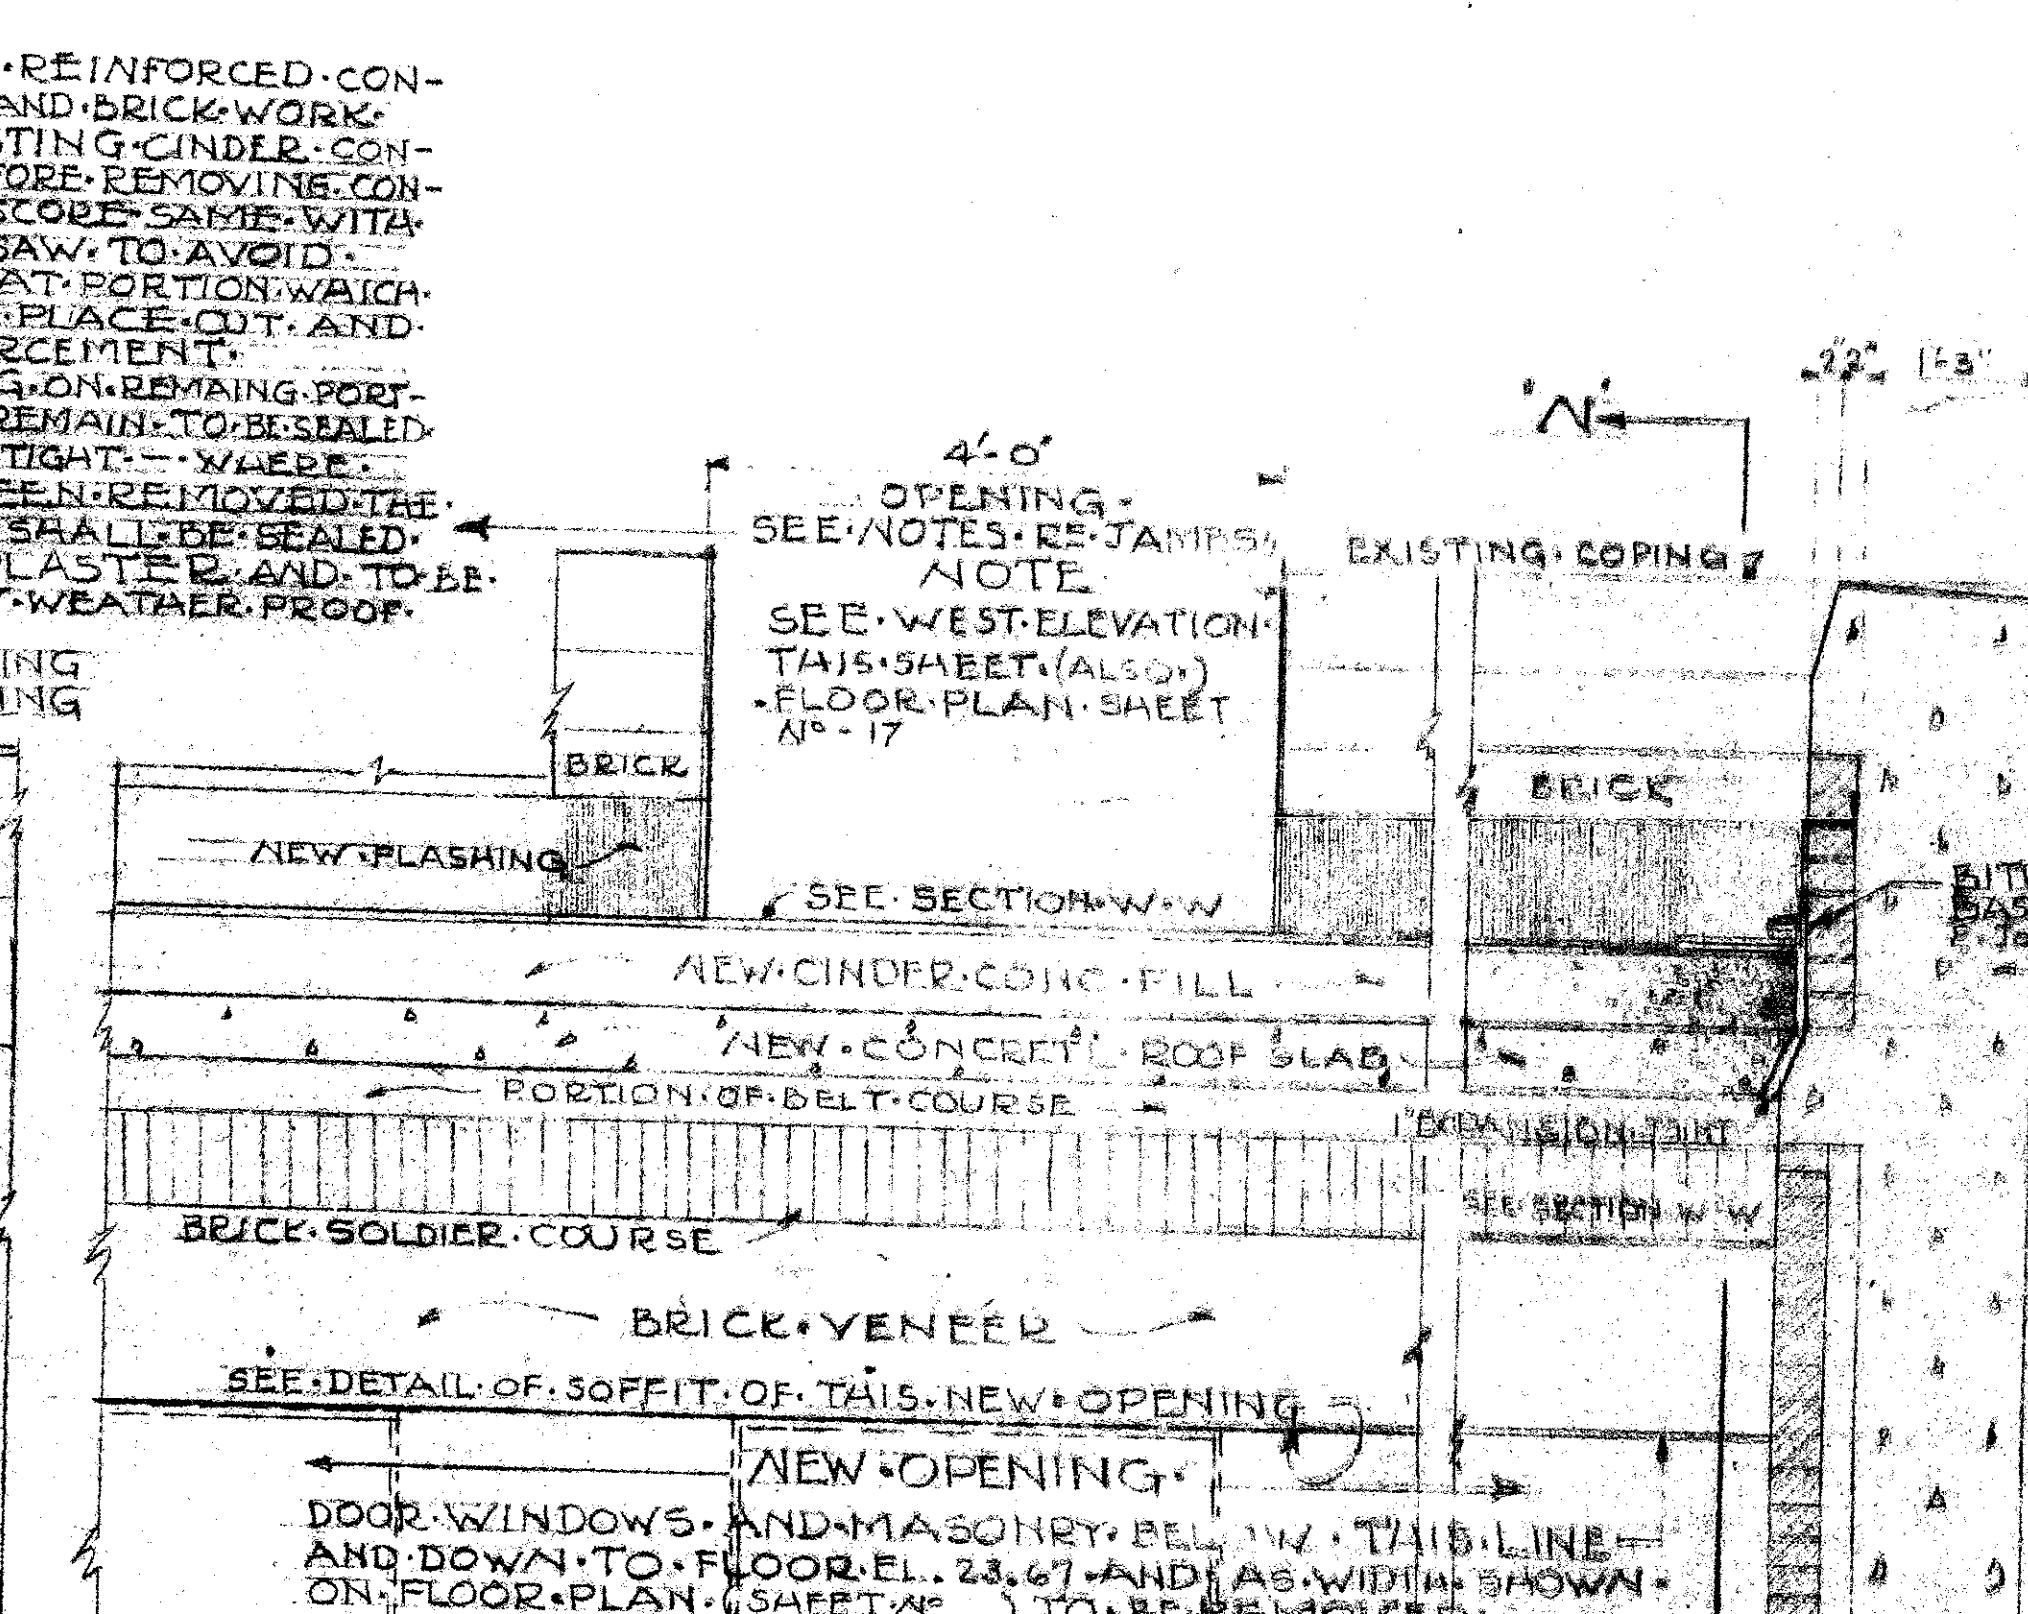 ·REINFORCED·CON-
AND·BRICK·WORK·
STING·CINDER·CON-
FORE·REMOVING·CON-
SCORE·SAME·WITH·
SAW·TO·AVOID·
AT·PORTION·WHICH·
·PLACE·CUT·AND·
RCEMENT·
G·ON·REMAING·PORT-
REMAIN·TO·BE·SEALED·
TIGHT·-·WHERE·
EEN·REMOVED·THE·
SHALL·BE·SEALED·
PLASTER·AND·TO·BE·
T·WEATHER·PROOF·
ING
ING
2" 2" 1'-3"
'N'
4'-0"
OPENING·
SEE·NOTES·RE·JAMBS
NOTE
SEE·WEST·ELEVATION·
THIS·SHEET·(ALSO·)
·FLOOR·PLAN·SHEET
Nº-17
EXISTING·COPING
BRICK
BRICK
NEW·FLASHING
SEE·SECTION·W·W
BIT
BAS
NEW·CINDER·CONC·FILL
NEW·CONCRETE·ROOF SLAB
PORTION·OF·BELT·COURSE
1" EXPANSION·JOINT
SEE SECTION W W
BRICK·SOLDIER·COURSE
BRICK·VENEER
SEE·DETAIL·OF·SOFFIT·OF·THIS·NEW·OPENING
NEW·OPENING·
DOOR·WINDOWS·AND·MASONRY·BEL W·THIS·LINE
AND·DOWN·TO·FLOOR·EL. 23.67·AND·AS·WIDTH·SHOWN·
ON·FLOOR·PLAN·(SHEET·Nº ) TO·BE·REMOVED·